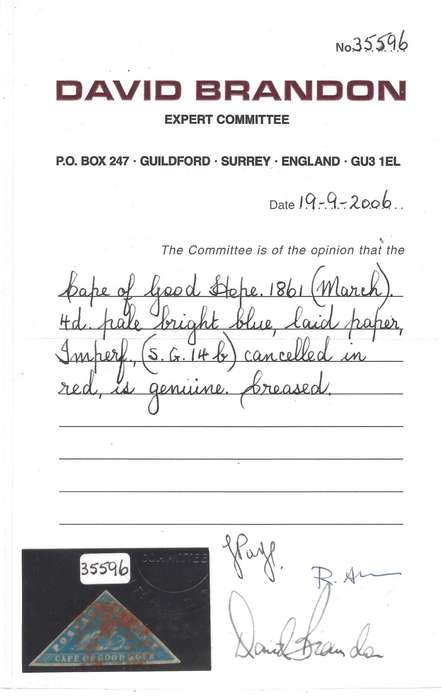 No. 35596
DAVID BRANDON
EXPERT COMMITTEE
P.O. BOX 247 · GUILDFORD · SURREY · ENGLAND · GU3 1EL
Date 19-9-2006
The Committee is of the opinion that the
Cape of Good Hope. 1861 (March).
4d. pale bright blue, laid paper,
Imperf., (S.G. 14b) cancelled in
red, is genuine. Creased.
35596
COMMITTEE
POSTAGE
CAPE OF GOOD HOPE
David Brandon